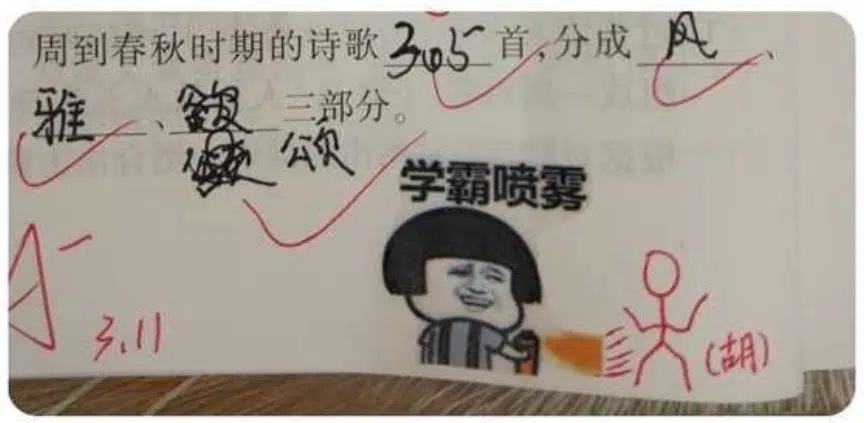 周到春秋时期的诗歌305首,分成风、
雅、三部分。
颂
学霸喷雾
A-
3.11
(胡)